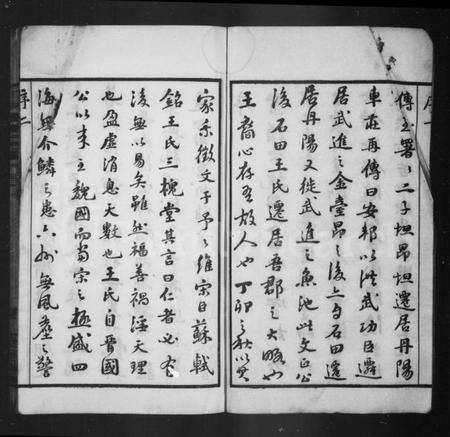 傳之署署二子坦昂坦遷居丹陽
車莊再傳曰安邦以洪武功臣遷
居武進之金臺昂之後上與石田遷
居丹陽又徙武進之魚池此文正公
後石田王氏遷居吾郡之大畧也
王裔心存吾故人也丁卯之秋以其
家乘徵文于予予維宋日蘇軾
銘王氏三槐堂其言曰仁者必有
後無以易矣雖然福善禍淫天理
也盈虛消息天數也王氏自晉國
公以來主魏國而當宗之極盛四
海無介鱗之患六州無風塵之警
序二